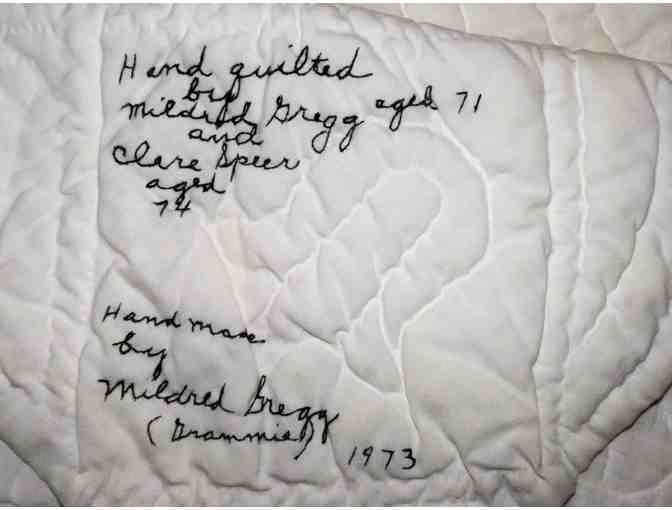 Hand quilted
by
Mildred Gregg aged 71
and
Clare Speer
aged
74
Hand made
by
Mildred Gregg
(Grammie)
1973